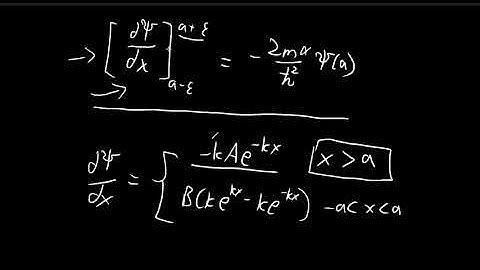 → [dΨ/dx]_{a-ε}^{a+ε} = -2mα/ħ² Ψ(a)
→
dΨ/dx = { -kAe^{-kx}  x > a
B(ke^{kx} - ke^{-kx})  -a < x < a